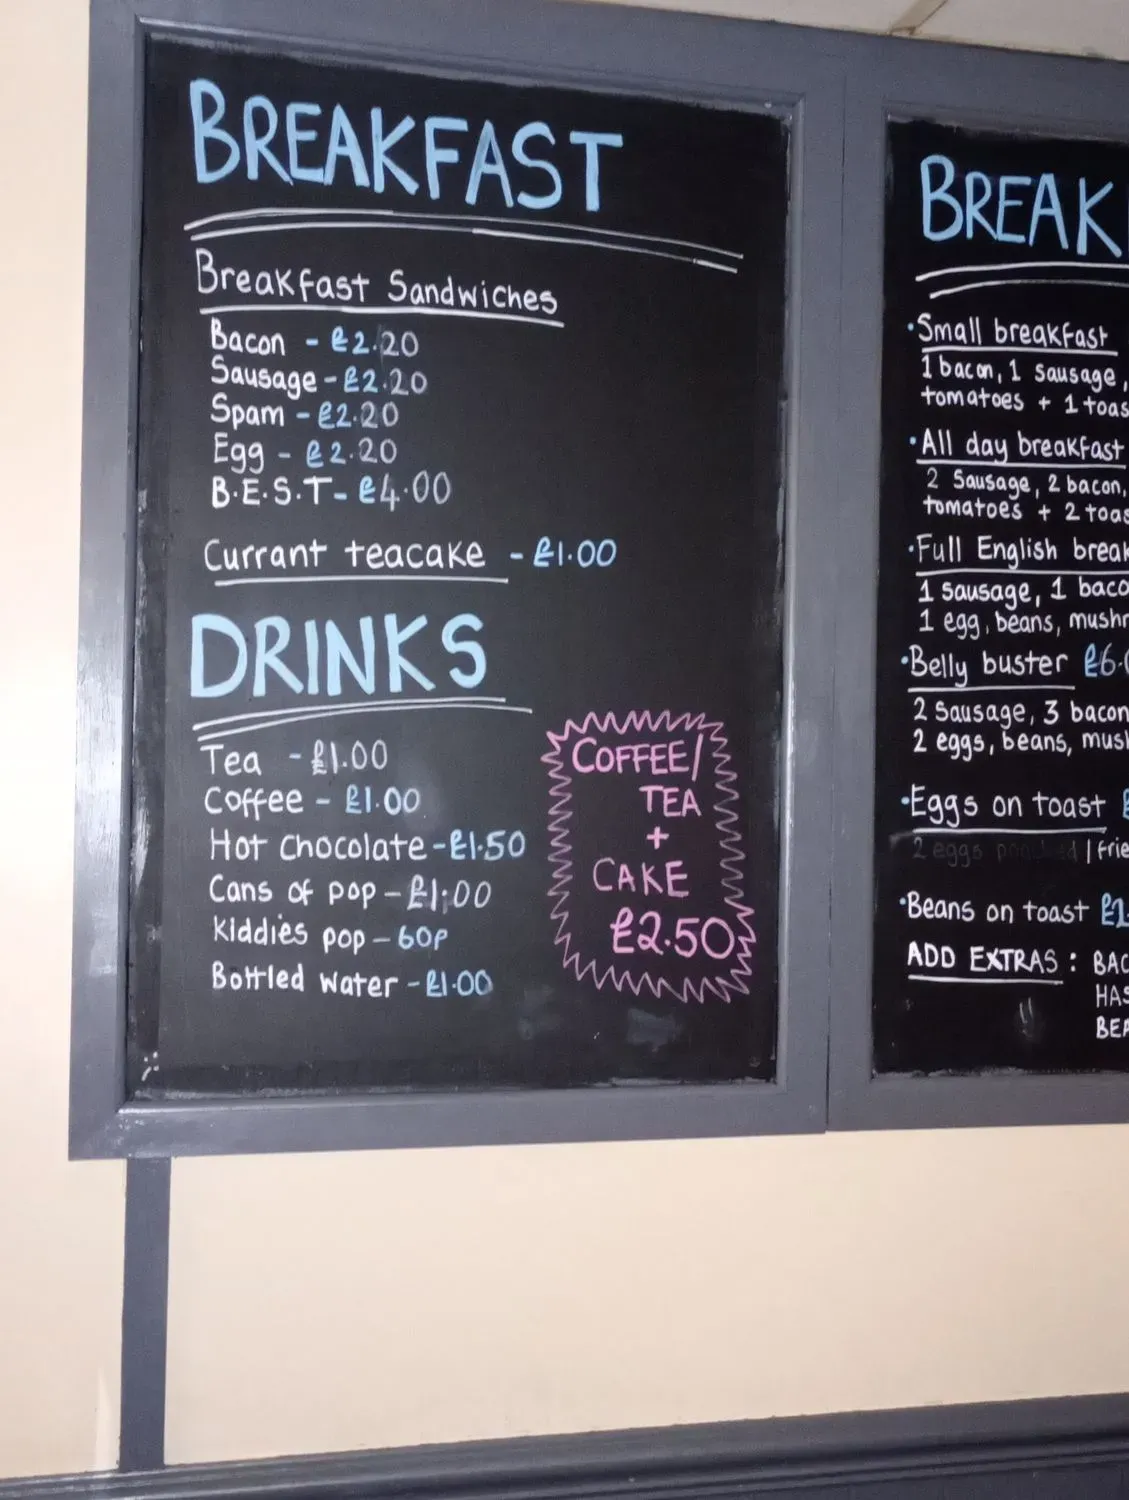 BREAKFAST
Breakfast Sandwiches
Bacon - £2.20
Sausage - £2.20
Spam - £2.20
Egg - £2.20
B.E.S.T - £4.00
Currant teacake - £1.00
DRINKS
Tea - £1.00
Coffee - £1.00
Hot chocolate - £1.50
Cans of pop - £1.00
Kiddies pop - 60p
Bottled water - £1.00
COFFEE/
TEA
+
CAKE
£2.50
BREAK
• Small breakfast
1 bacon, 1 sausage,
tomatoes + 1 toas
• All day breakfast
2 Sausage, 2 bacon,
tomatoes + 2 toas
• Full English break
1 sausage, 1 baco
1 egg, beans, mushr
• Belly buster £6.
2 Sausage, 3 bacon
2 eggs, beans, mush
• Eggs on toast
2 eggs | frie
• Beans on toast
ADD EXTRAS : BAC
HAS
BEA